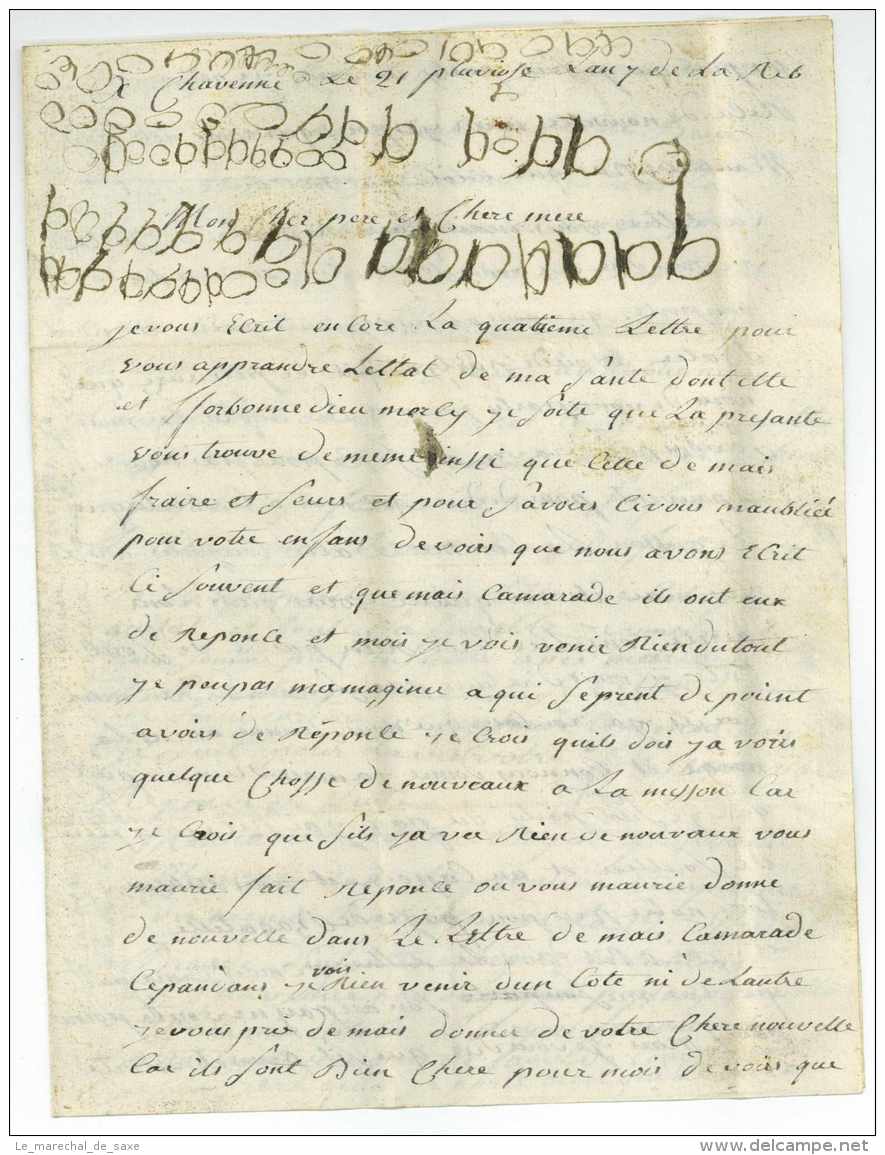 Chavenne Le 21 pluviose Lan 7 de La Reb
Mon cher pere et Chere mere
je vous Ecrit encore La quatieme Lettre pour
vous apprandre Lettat de ma sante dont elle
et forbonne dieu mercy je soite que La presante
vous trouve de meme insti que celle de mais
fraire et seurs et pour savoirs ci vous maubliee
pour votre enfans de voirs que nous avons Ecrit
ci souvent et que mais Camarade ils ont eux
de Reponce et mois je vois venir Rien du tout
je peu pas mamaginer a qui se prent de point
avoirs de Réponce je Crois quils dois y a voirs
quelque Chosse de nouveaux a La messon Car
je Crois que sils y aver Rien de nouvaux vous
maurie fait Reponce ou vous maurie donne
de nouvelle dans Le Lettre de mais Camarade
Cepandans je vois Rien venir dun Cote ni de Lautre
je vous prie de mais donner de votre Chere nouvelle
Car ils sont Bien Chere pour mois de voirs que
Le_marechal_de_saxe
www.delcampe.net